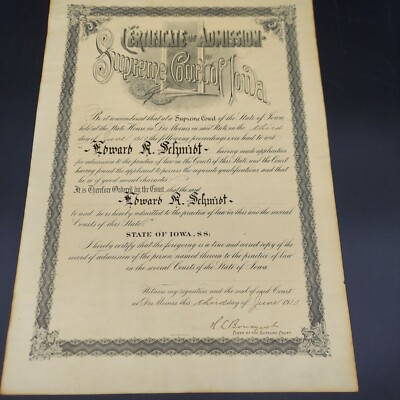 CERTIFICATE OF ADMISSION
Supreme Court of Iowa
Be it remembered that at a SUPREME COURT of the State of Iowa,
held at the State House in Des Moines in said State on the third
day of June the following proceedings were had to wit:
-Edward R. Schmidt- having made application
for admission to the practice of law in the Courts of this State and the Court
having found the applicant to possess the requisite qualifications, and that
he is of good moral character
It is Therefore Ordered by the Court that the said
-Edward R. Schmidt-
to and he is hereby admitted to the practice of law in this and the several
Courts of this State.
STATE OF IOWA, SS:
I hereby certify that the foregoing is a true and exact copy of the
record of admission of the person named therein to the practice of law
in the several Courts of the State of Iowa.
Witness my signature and the seal of said Court
at Des Moines this third day of June
CLERK OF THE SUPREME COURT